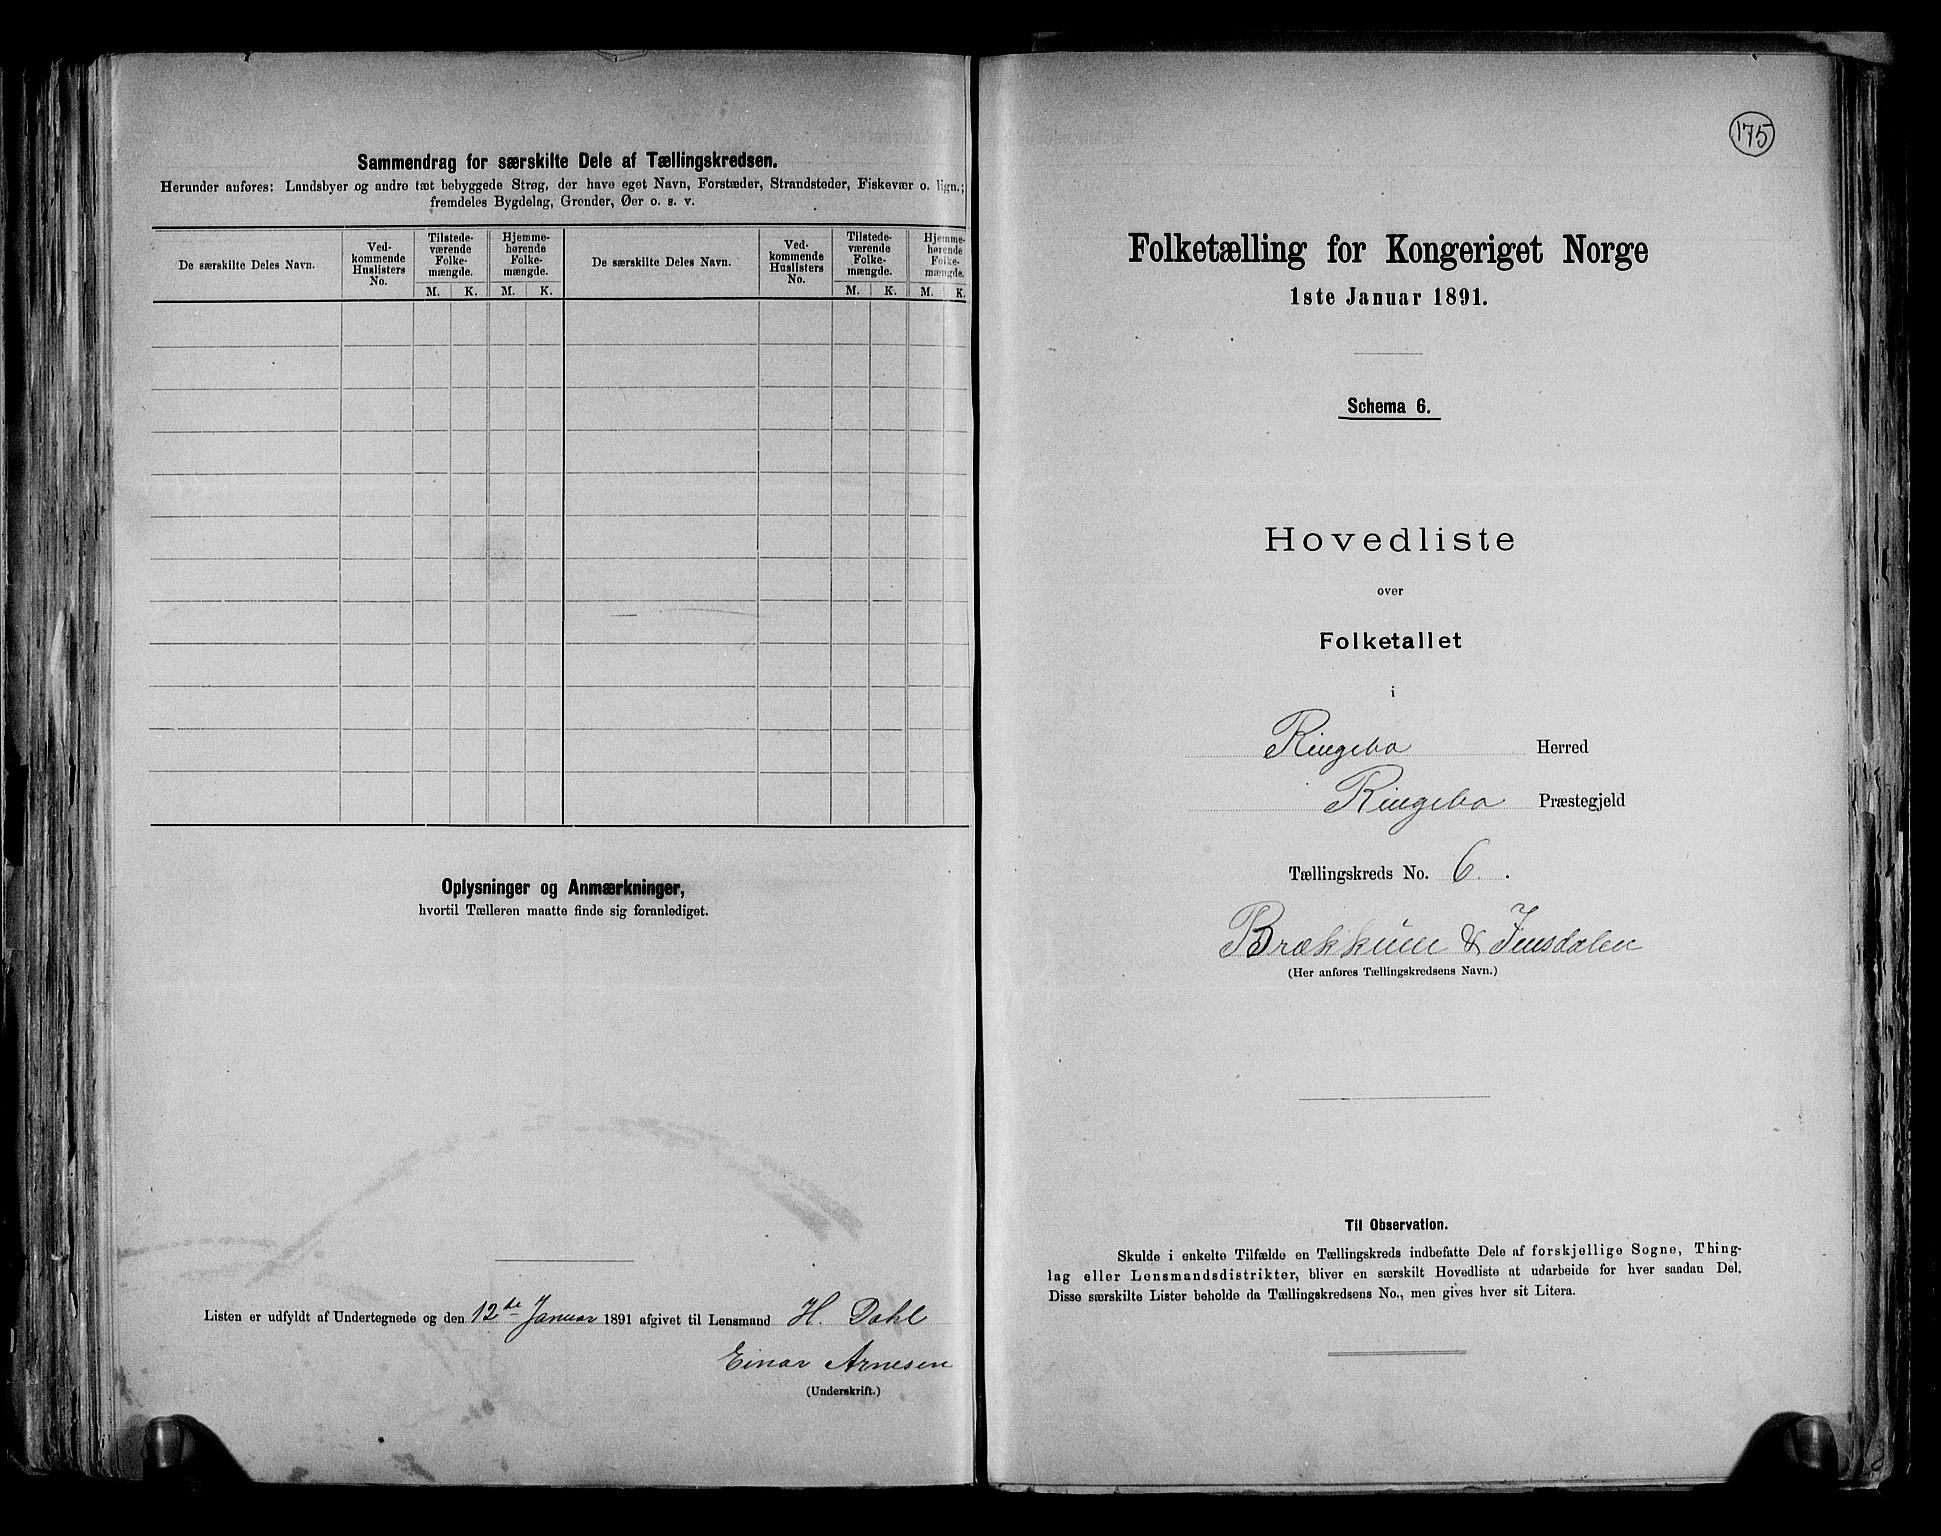 Sammendrag for særskilte Dele af Tællingskredsen.
Herunder anføres: Landsbyer og andre tæt bebyggede Strøg, der have eget Navn, Forstæder, Strandsteder, Fiskevær o. lign.;
fremdeles Bygdelag, Grender, Øer o. s. v.
De særskilte Deles Navn.
Ved-
kommende
Huslisters
No.
Tilstede-
værende
Folke-
mængde.
Hjemme-
hørende
Folke-
mængde.
De særskilte Deles Navn.
Ved-
kommende
Huslisters
No.
Tilstede-
værende
Folke-
mængde.
Hjemme-
hørende
Folke-
mængde.
M. K. M. K. M. K. M. K.
Oplysninger og Anmærkninger,
hvortil Tælleren maatte finde sig foranlediget.
Listen er udfyldt af Undertegnede og den 12te Januar 1891 afgivet til Lensmand H. Dahl
Einar Arnesen
(Underskrift.)
175
Folketælling for Kongeriget Norge
1ste Januar 1891.
Schema 6.
Hovedliste
over
Folketallet
i
Ringebo Herred
Ringebo Præstegjeld
Tællingskreds No. 6.
Brækkum & Imsdalen
(Her anføres Tællingskredsens Navn.)
Til Observation.
Skulde i enkelte Tilfælde en Tællingskreds indbefatte Dele af forskjellige Sogne, Thing-
lag eller Lensmandsdistrikter, bliver en særskilt Hovedliste at udarbeide for hver saadan Del.
Disse særskilte Lister beholde da Tællingskredsens No., men gives hver sit Litera.